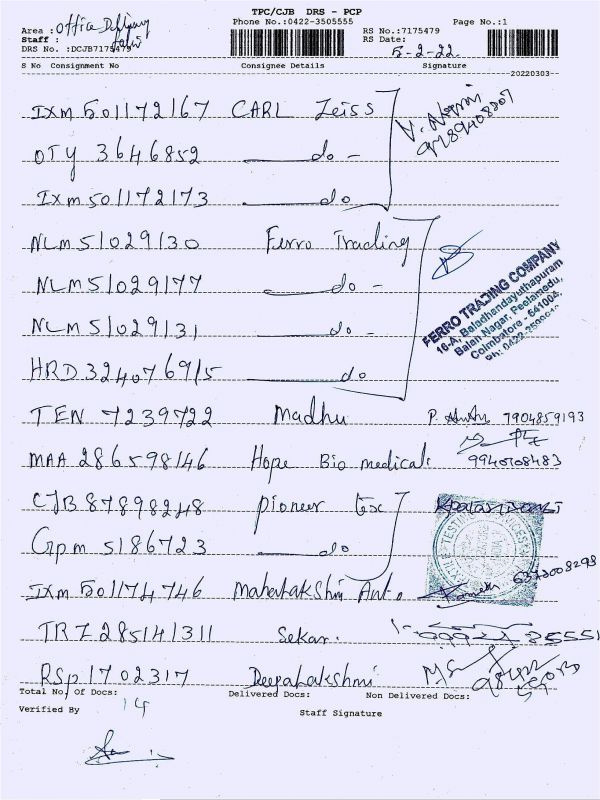 TPC/CJB DRS - PCP
Area : Office Phone No.:0422-3505555 Page No.:1
Staff : RS No.:7175479
DRS No. :DCJB7175479 RS Date: 5-2-22
S No Consignment No Consignee Details Signature
20220303
IXM 501172167 CARL Zeiss
OTY 3646852 do -
IXM 501172173 do
NLM 51029130 Ferro Trading
NLM 51029177 do -
NLM 51029131 do -
HRD 324076915 do
FERRO TRADING COMPANY
16-A, Baladhandayuthapuram
Balan Nagar, Peelamedu,
Coimbatore - 541004,
TEN 7239722 Madhu P. 7904859193
MAA 286598146 Hope Bio medical. 9940108483
CJB 87898248 Pioneer tex
Gpm 5186723 do
IXM 501174746 Mahalakshmi Auto 6373008298
TRZ 285141311 Sekar.
RSP 1702317 Deepalakshmi
Total No. of Docs: 14 Delivered Docs: Non Delivered Docs:
Verified By Staff Signature